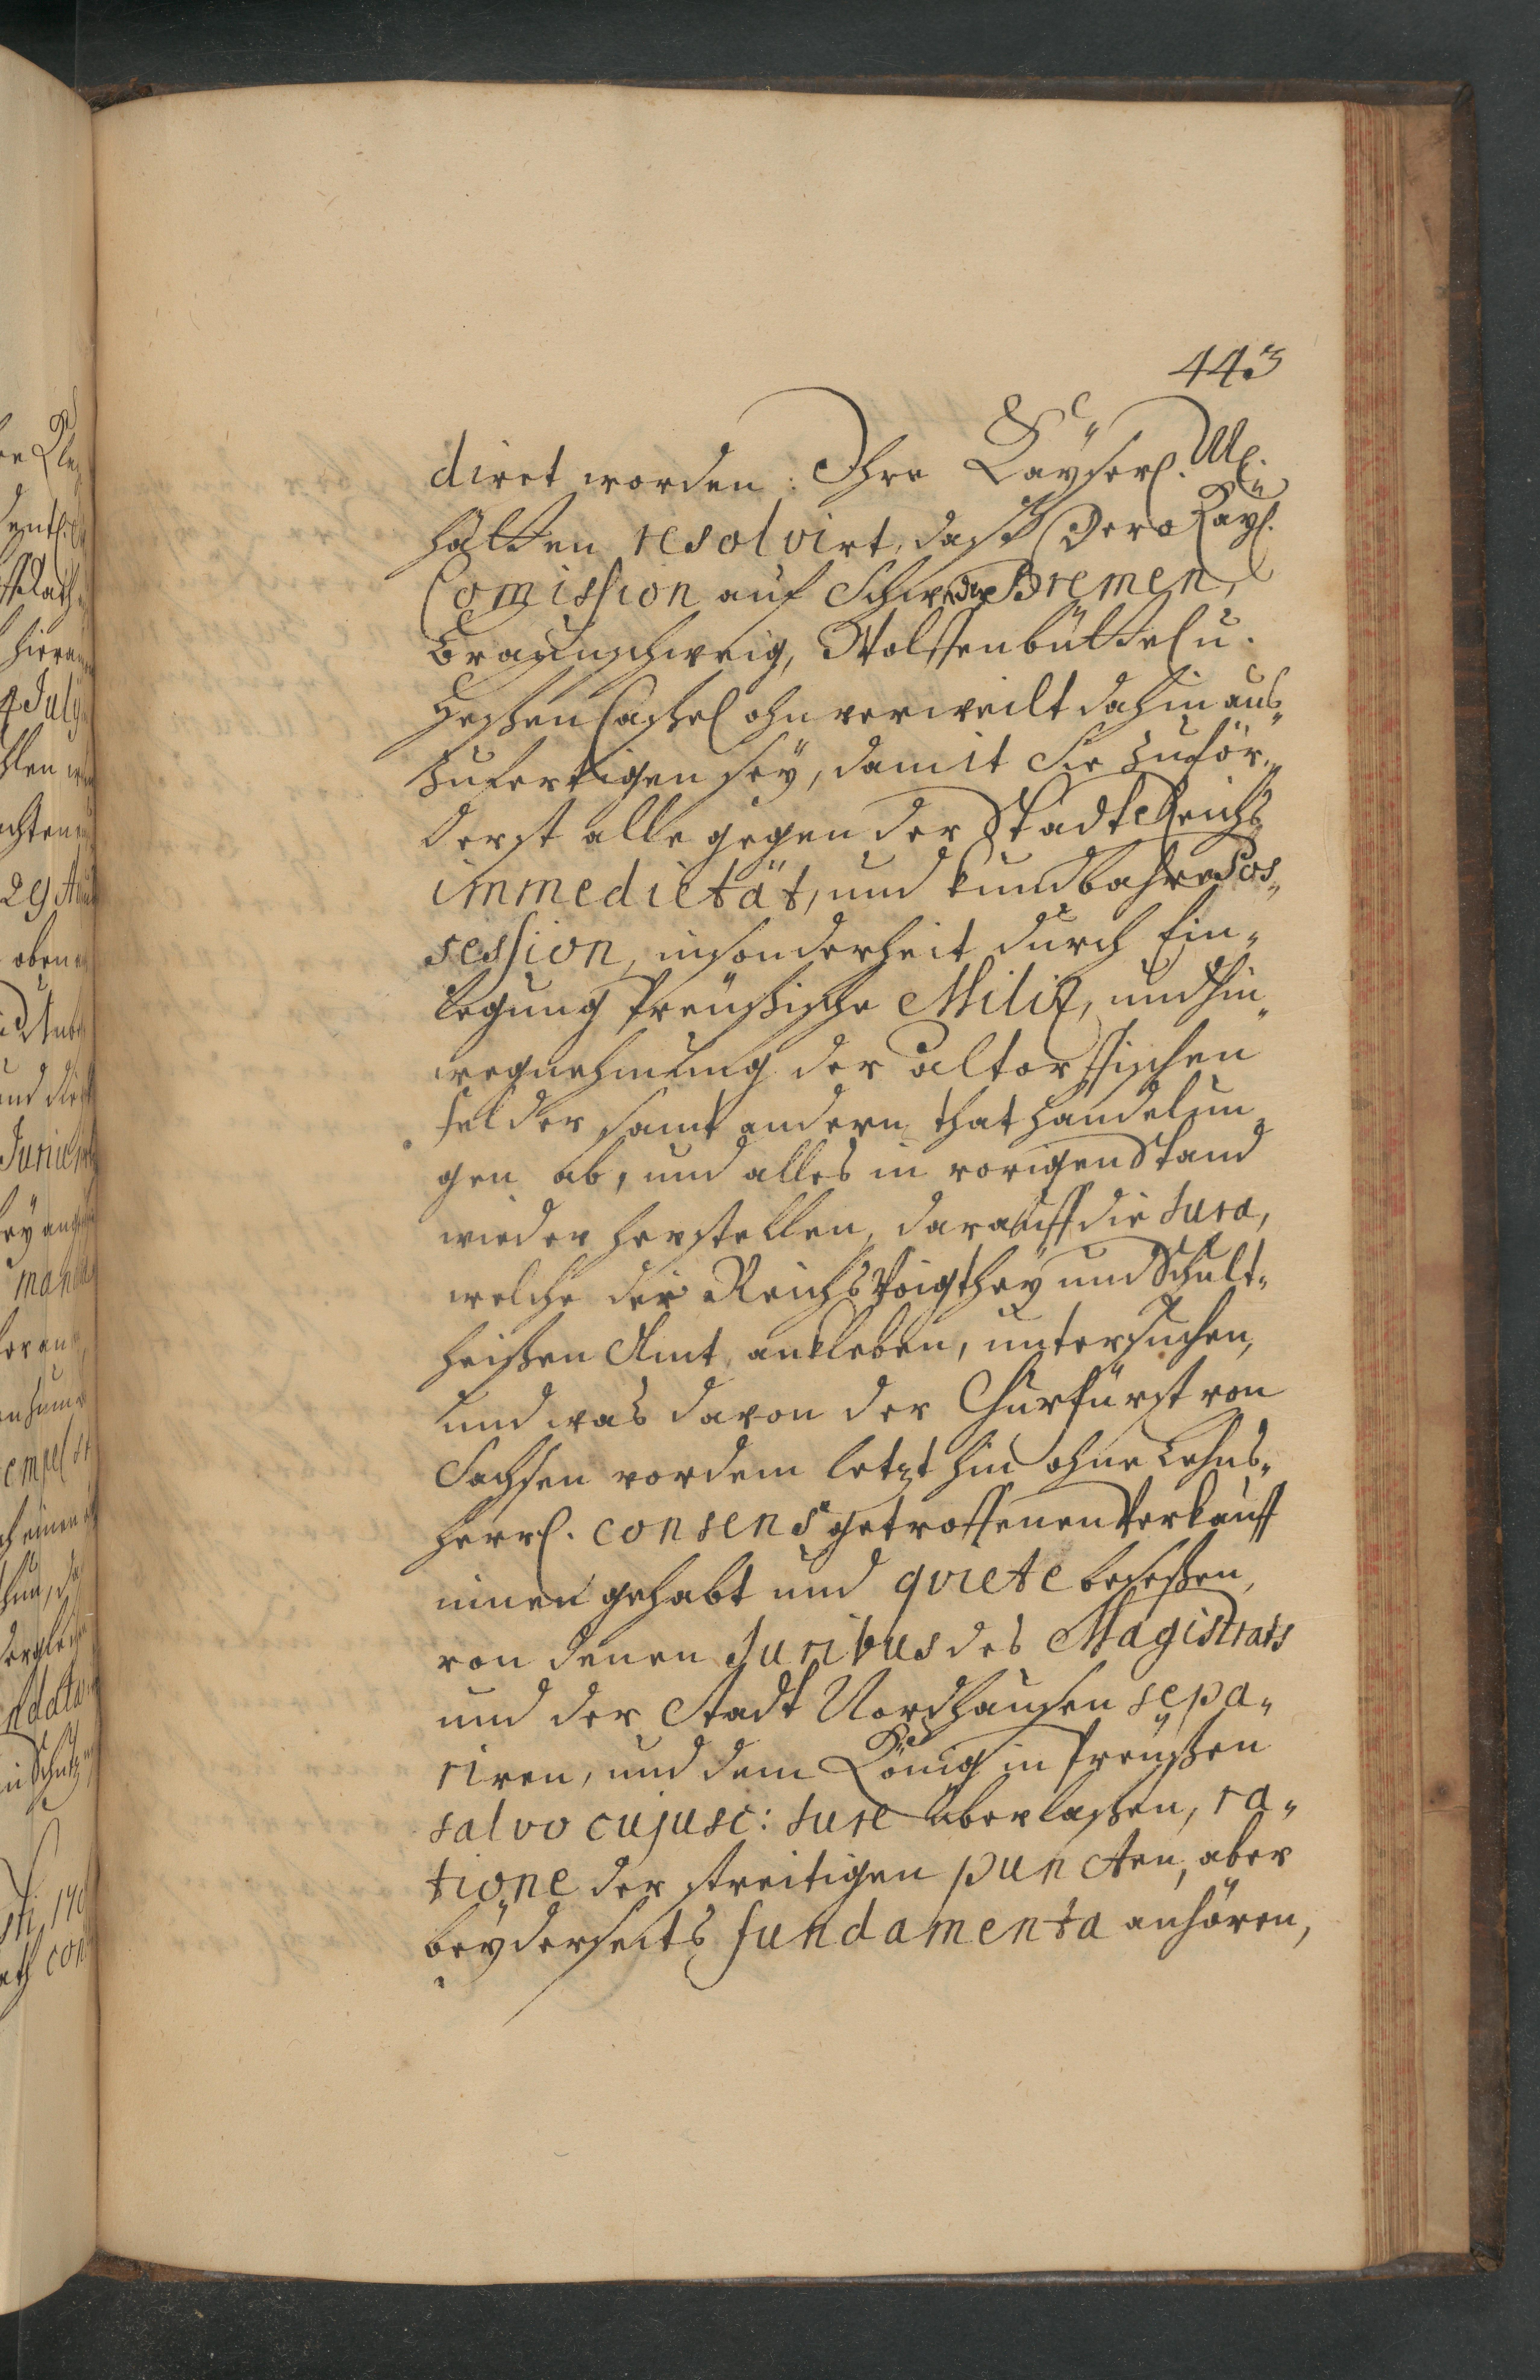 443
diret worden: Ihre Kaÿserl. M.
hätten resolvirt, daß Dero Kaÿl.
Com̄ission auf Schweden Bremen,
Braunschweig, Wolffenbüttel u.
Heßen Caßel ohnverweilt dahin aus„
zufertigen seÿ, damit Sie zuför„
derst alle gegen der Stadt Reichs
immedietät, und kundbahre Pos„
session, insonderheit durch Ein„
legung Preußische Miliz, und hin„
wegnehmung der altorffischen
felder samt andern thathandelun„
gen ab, und alles in vorigen Stand
wieder herstellen, darauff die Jura,
welche der ReichsVoigtheÿ und Schult„
heißen Amt ankleben, untersuchen,
und was davon der Churfürst von
Sachsen vor dem letzthin ohne Lehns„
herrl. consens getroffenen Verkauff
innen gehabt und qviete beseßen,
von denen Juribus des Magistrats
und der Stadt Nordhausen sepa„
riren, und dem König in Preußen
salvo cujusc: Jure überlaßen, ra„
tione der streitigen puncten, aber
beÿderseits fundamenta anhören,